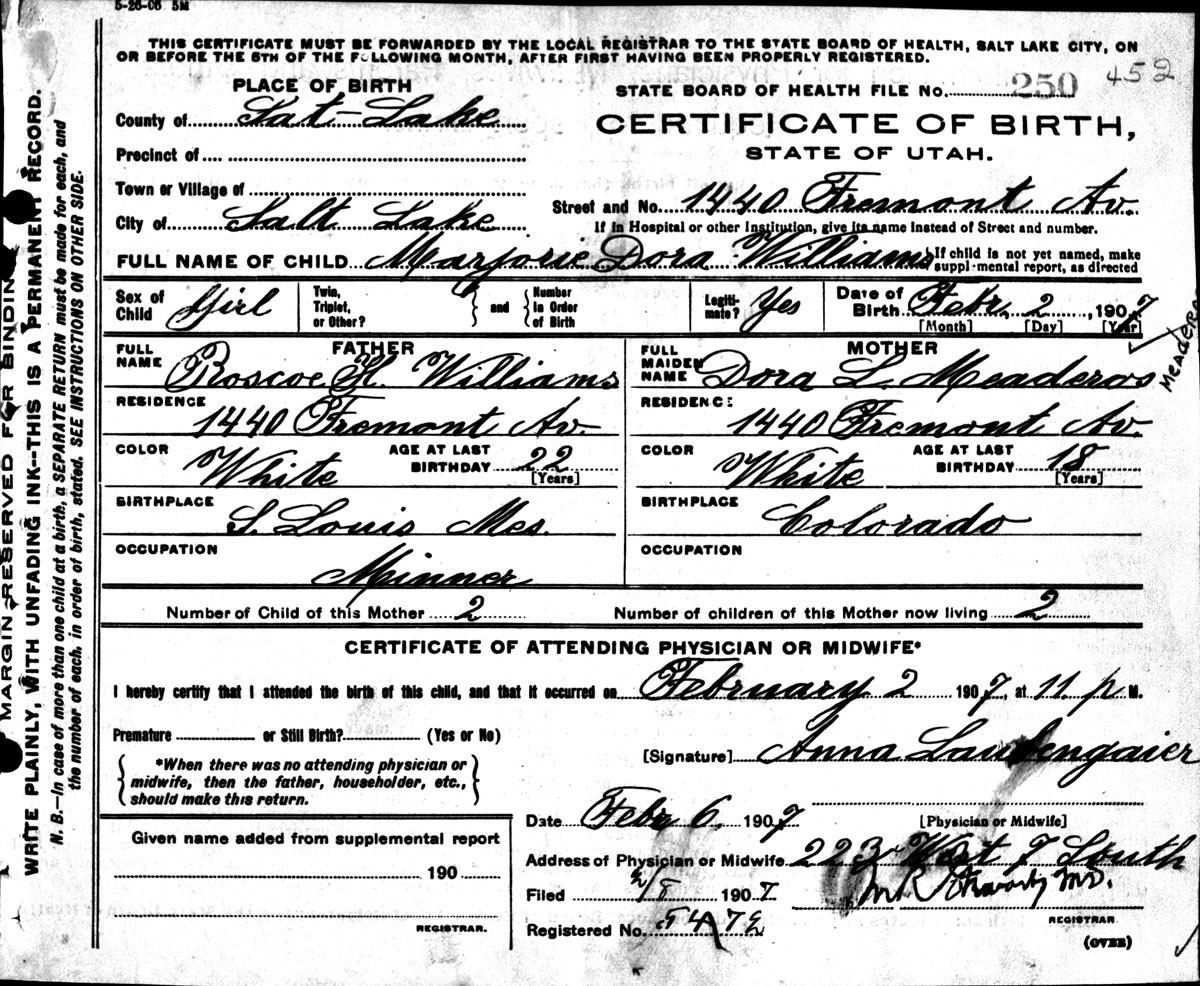 5-26-06 5M
THIS CERTIFICATE MUST BE FORWARDED BY THE LOCAL REGISTRAR TO THE STATE BOARD OF HEALTH, SALT LAKE CITY, ON
OR BEFORE THE 5TH OF THE FOLLOWING MONTH, AFTER FIRST HAVING BEEN PROPERLY REGISTERED.
PLACE OF BIRTH
STATE BOARD OF HEALTH FILE No. 250 452
County of Sat-Lake
CERTIFICATE OF BIRTH,
STATE OF UTAH.
Precinct of
Town or Village of
Street and No. 1440 Fremont Av.
City of Salt Lake
If in Hospital or other Institution, give its name instead of Street and number.
FULL NAME OF CHILD Marjorie Dora Williams
If child is not yet named, make
supplemental report, as directed
Sex of Child Girl
Twin, Triplet, or Other? and Number in Order of Birth
Legiti-mate? Yes
Date of Birth Febr. 2, 1907
[Month] [Day] [Year]
FATHER
FULL NAME Roscoe H. Williams
RESIDENCE 1440 Fremont Av.
COLOR White AGE AT LAST BIRTHDAY 22 [Years]
BIRTHPLACE S. Louis Mes.
OCCUPATION Minner
MOTHER
FULL MAIDEN NAME Dora L. Meaderos
RESIDENCE 1440 Fremont Av.
COLOR White AGE AT LAST BIRTHDAY 18 [Years]
BIRTHPLACE Colorado
OCCUPATION
Number of Child of this Mother 2 Number of children of this Mother now living 2
CERTIFICATE OF ATTENDING PHYSICIAN OR MIDWIFE*
I hereby certify that I attended the birth of this child, and that it occurred on February 2 1907, at 11. p M.
Premature or Still Birth? (Yes or No)
[Signature] Anna Laubengaier
*When there was no attending physician or
midwife, then the father, householder, etc.,
should make this return.
Date Febr 6, 1907
[Physician or Midwife]
Given name added from supplemental report
190
REGISTRAR.
Address of Physician or Midwife 223 West 7 South
Filed 2/8 1907
M.D.
REGISTRAR
Registered No. 5472
(OVER)
MARGIN RESERVED FOR BINDIN
WRITE PLAINLY, WITH UNFADING INK--THIS IS A PERMANENT RECORD.
N. B.—In case of more than one child at a birth, a SEPARATE RETURN must be made for each, and
the number of each, in order of birth, stated. SEE INSTRUCTIONS ON OTHER SIDE.